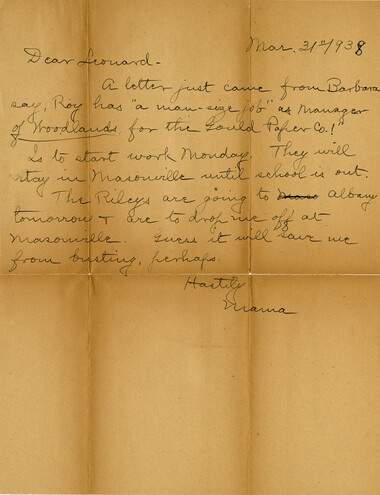 Mar. 31st/938
Dear Leonard-
A letter just came from Barbara
say, Roy has "a man-size job" as manager
of Woodlands, for the Gould Paper Co.!"
Is to start work Monday. They will
stay in Masonville until school is out.
The Rileys are going to albany
tomorrow & are to drop me off at
masonville. Guess it will save me
from busting, perhaps.
Hastily
Mama